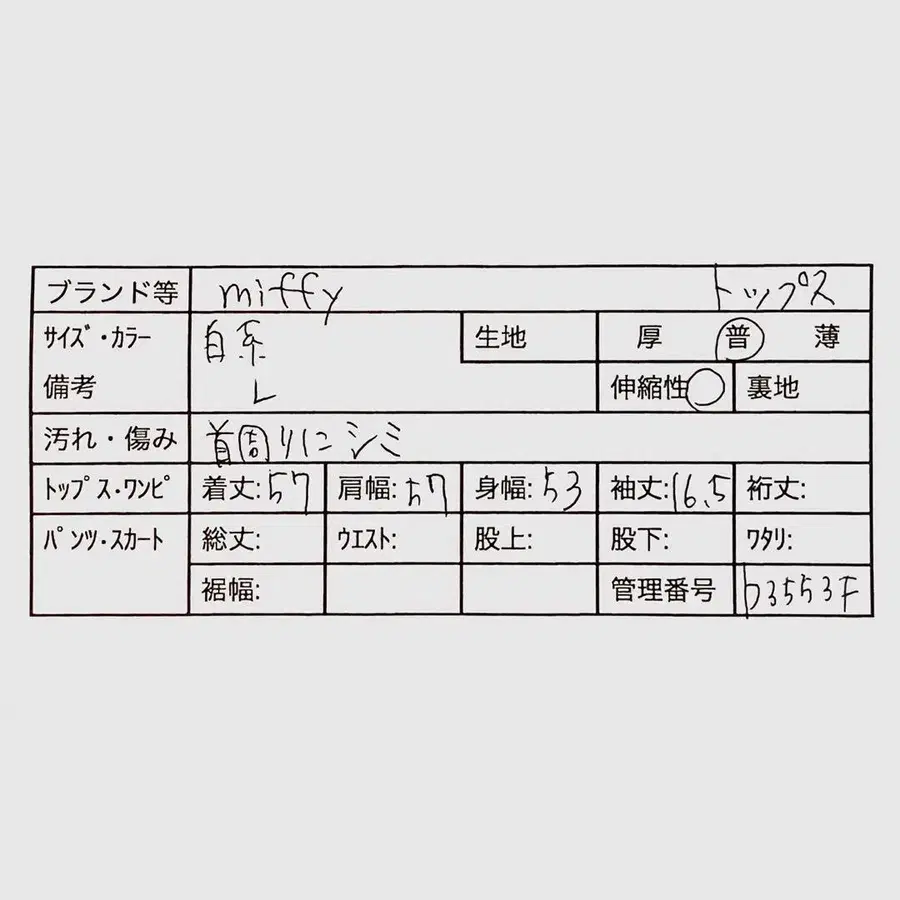 ブランド等 miffy トップス
サイズ・カラー 白系 生地 厚 普 薄
備考 L 伸縮性○ 裏地
汚れ・傷み 首周りにシミ
トップス・ワンピ 着丈:57 肩幅:57 身幅:53 袖丈:16.5 裄丈:
パンツ・スカート 総丈: ウエスト: 股上: 股下: ワタリ:
裾幅: 管理番号 D3553F